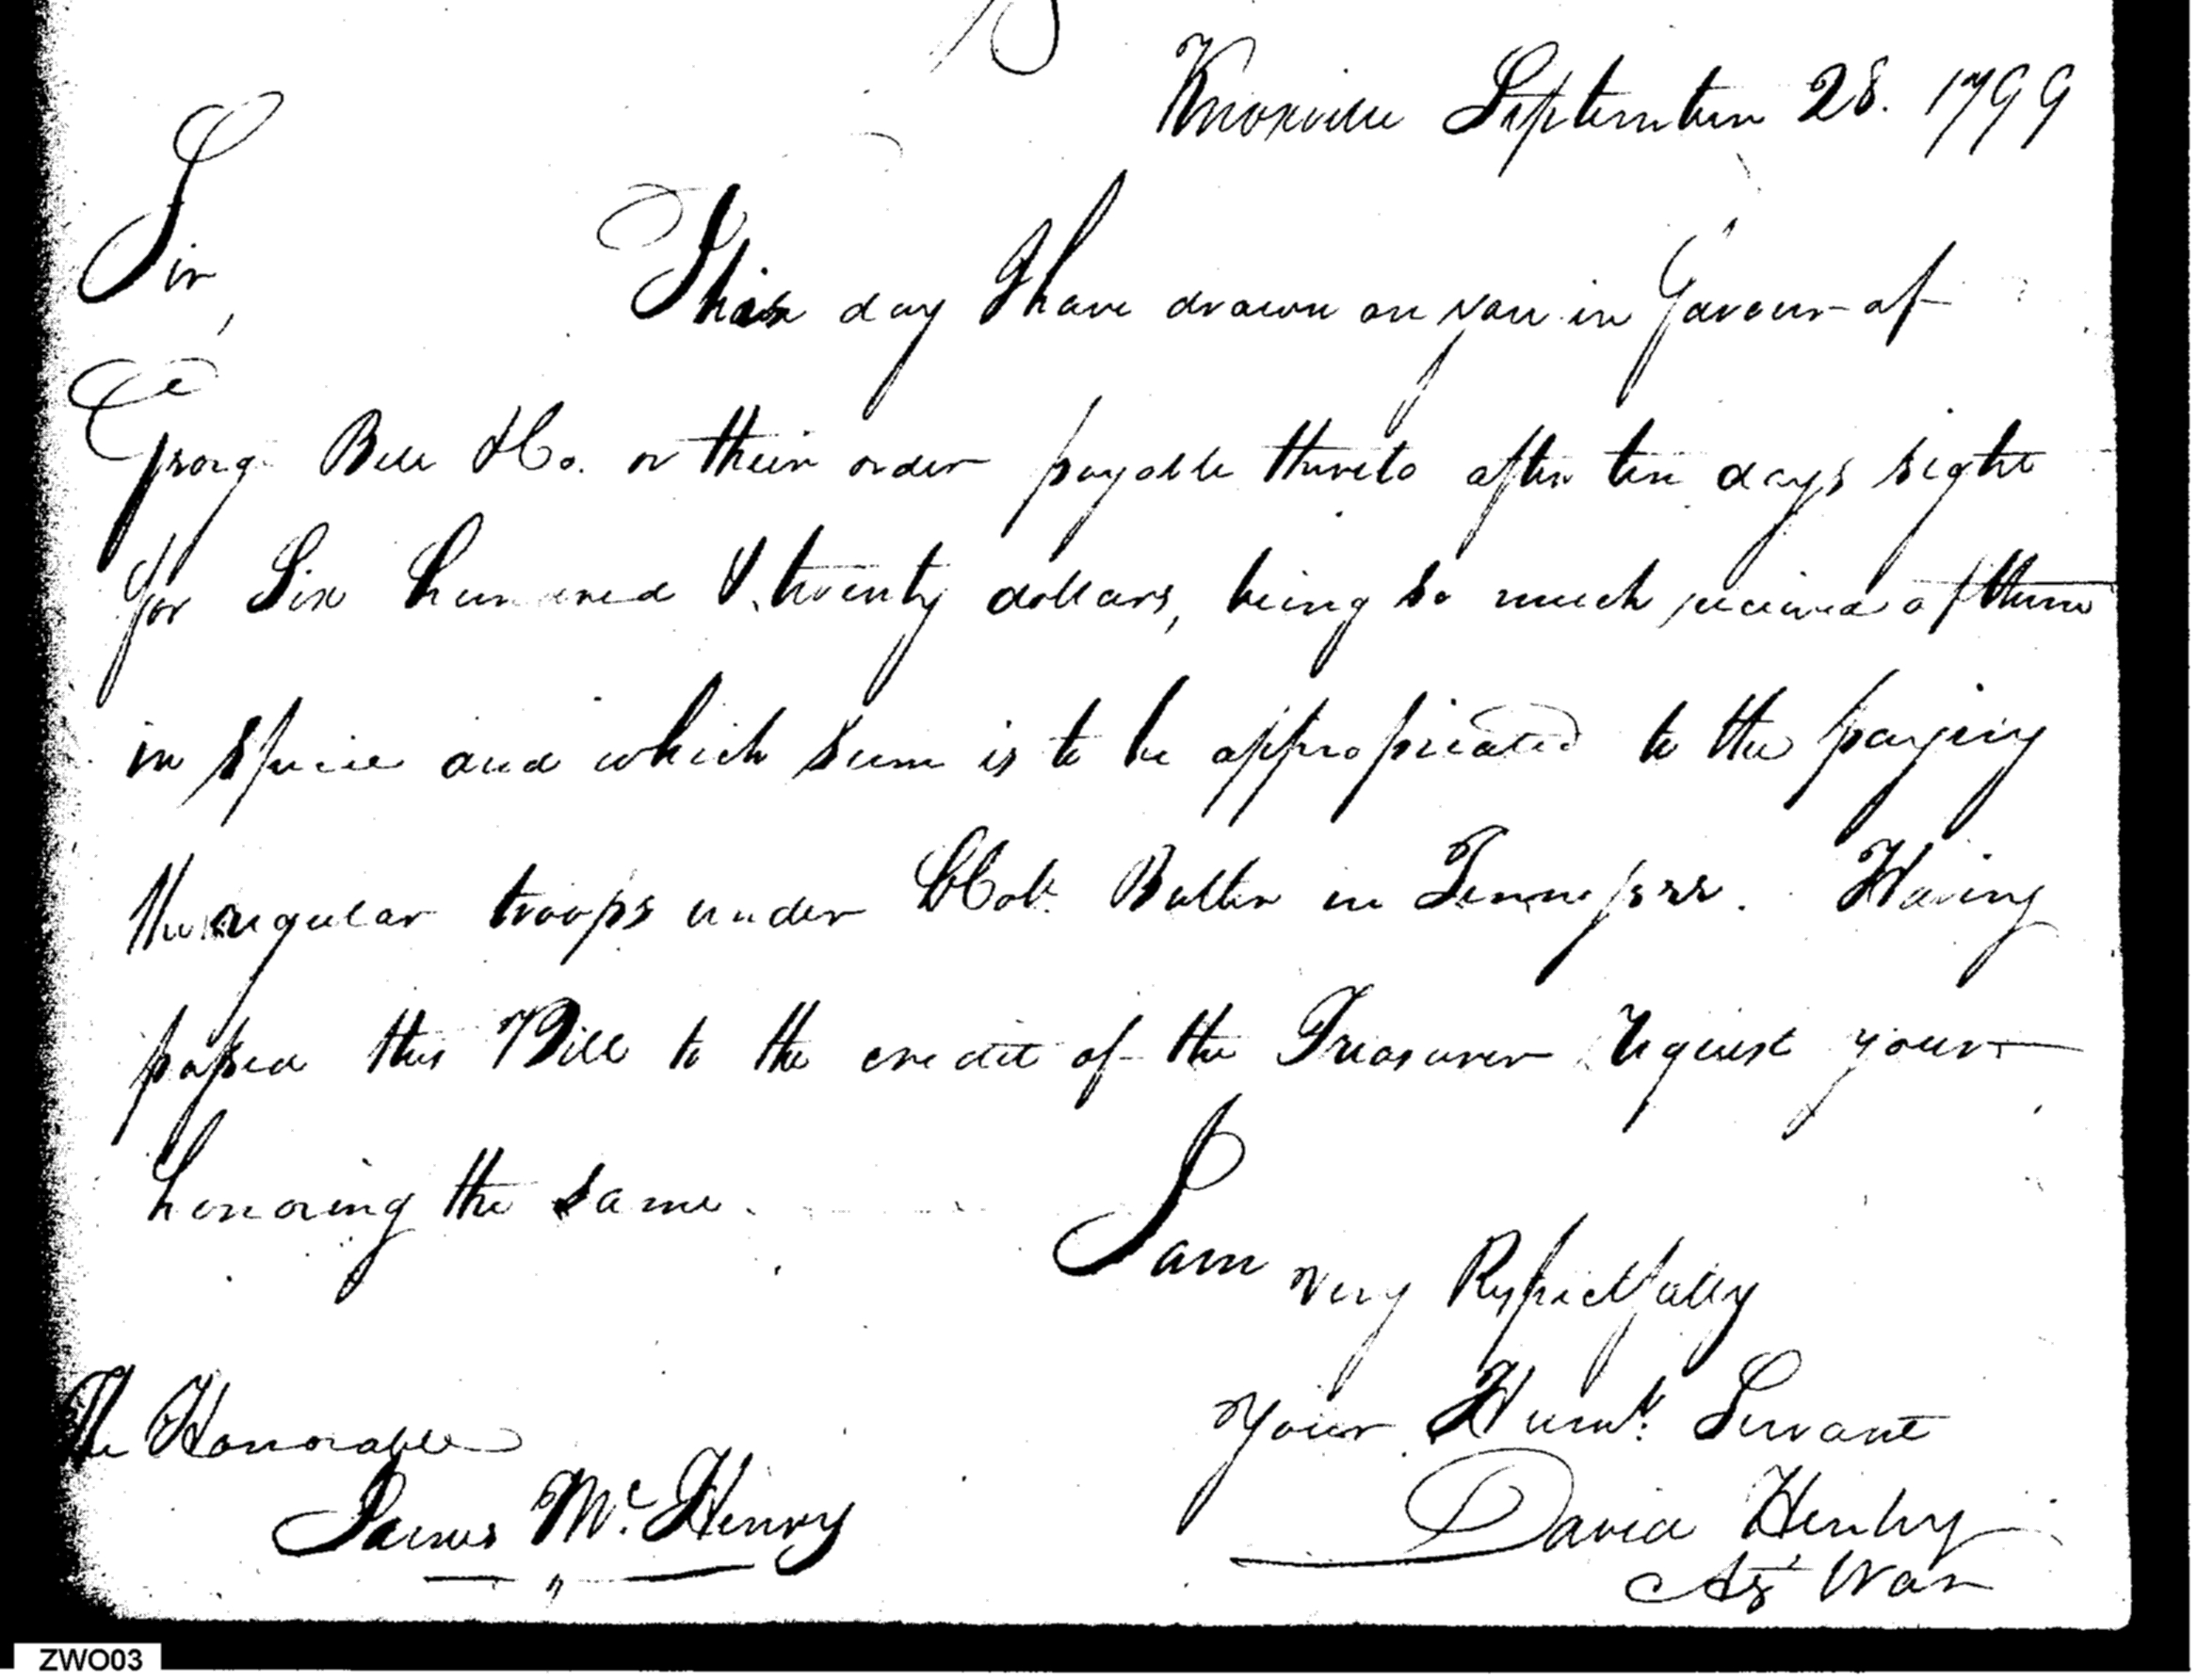 Knoxville September 28. 1799
Sir,
This day I have drawn on you in favour of
George Bell & Co. or their order payable thereto after ten days sight
for Six hundred & twenty dollars, being so much received of them
in specie and which sum is to be appropriated to the paying
the regular troops under Col. Butler in Tennessee. Having
passed this Bill to the credit of the Treasurer request your
honoring the same.
I am very Respectfully
your Humb. Servant
David Henley
Ag. War
The Honorable
James Mc. Henry
ZWO03